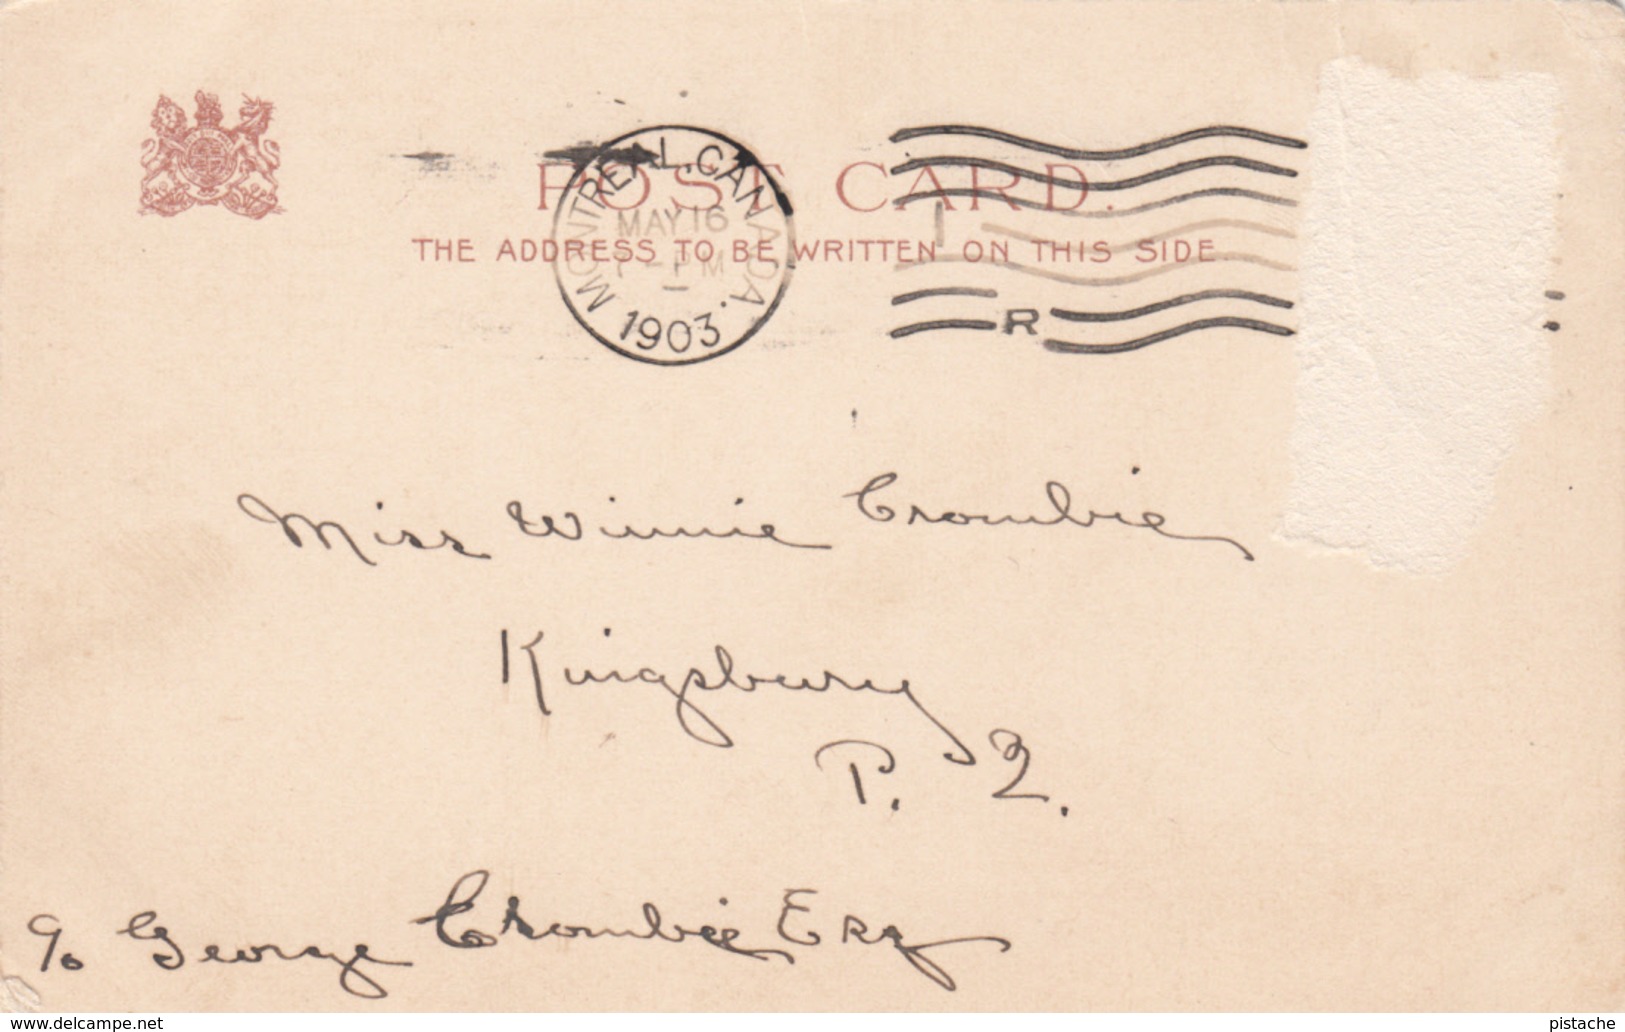 MONTREAL, CANADA.
MAY 16
PM
1903
POST CARD.
THE ADDRESS TO BE WRITTEN ON THIS SIDE.
R
Miss Winnie Crombie
Kingsbury
P. Q.
c/o George Crombie Esq
www.delcampe.net
pistache